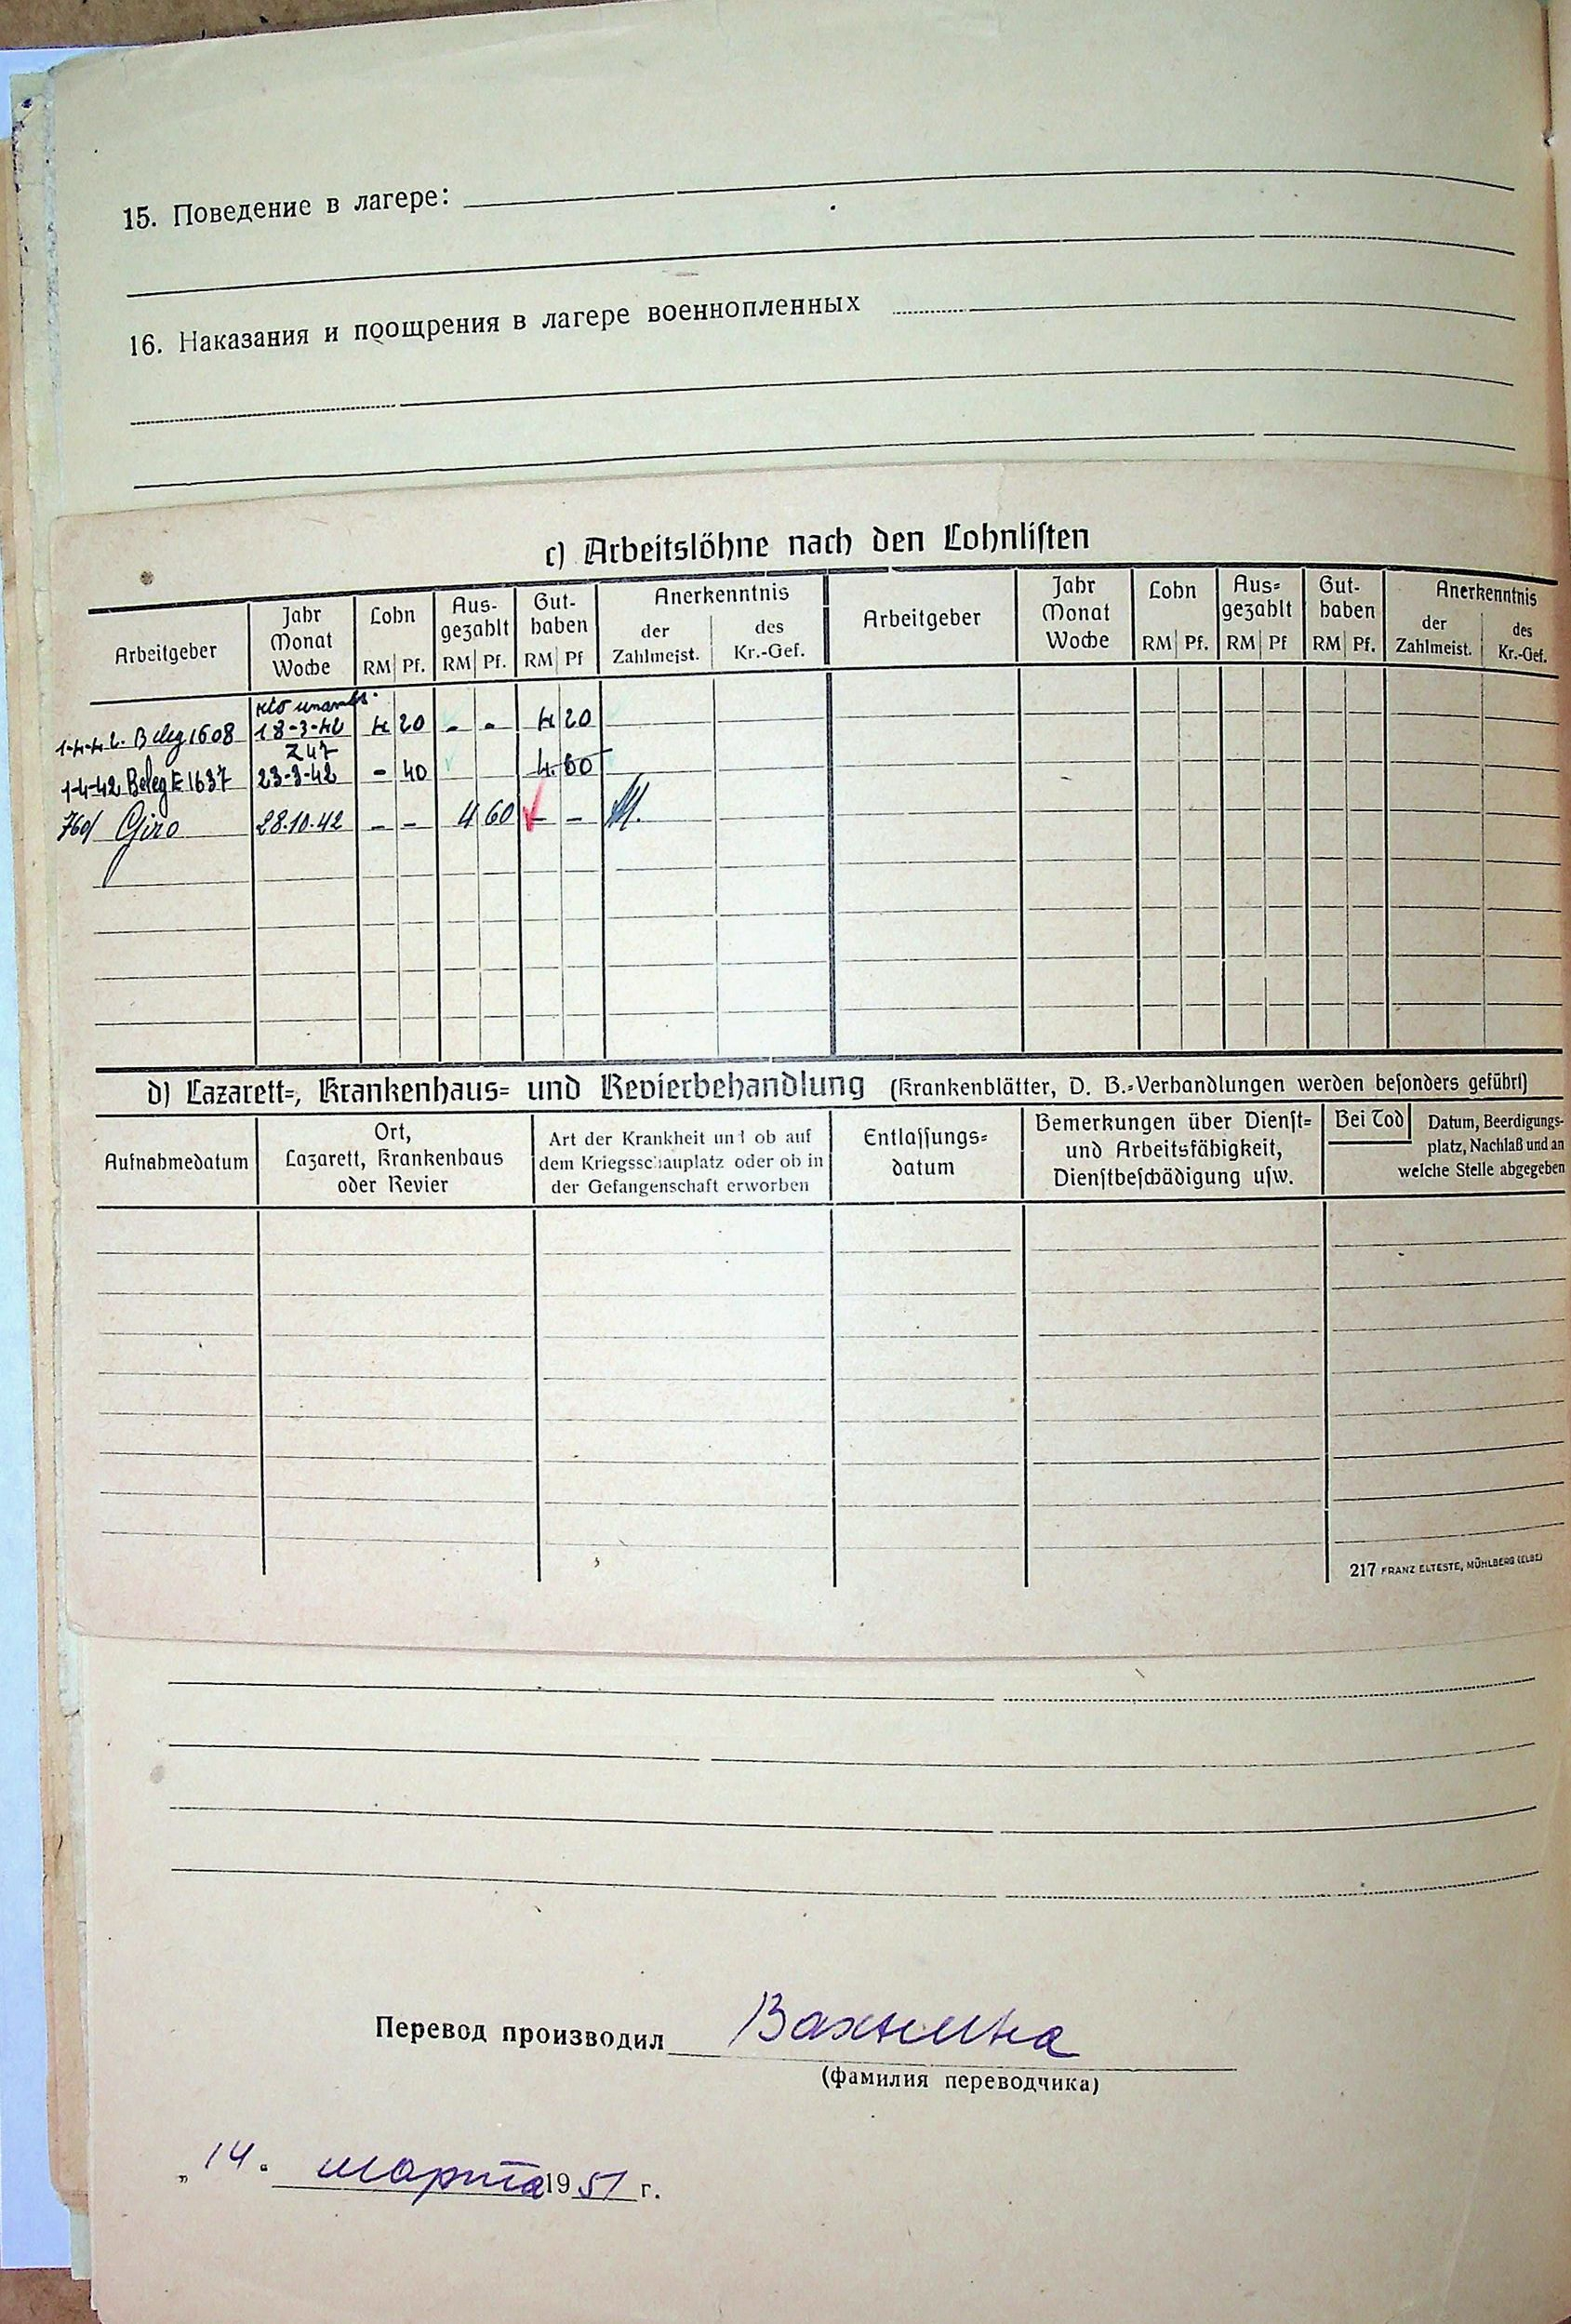 15. Поведение в лагере:
16. Наказания и поощрения в лагере военнопленных
c) Arbeitslöhne nach den Lohnlisten
Arbeitgeber Jahr Monat Woche Lohn RM Pf. Aus-gezahlt RM Pf. Gut-haben RM Pf Anerkenntnis der Zahlmeist. des Kr.-Gef. Arbeitgeber Jahr Monat Woche Lohn RM Pf. Aus-gezahlt RM Pf Gut-haben RM Pf. Anerkenntnis der Zahlmeist. des Kr.-Gef.
1-4-42. Beleg 1608 18-3-42 4 20 - - 4 20
Z 47
1-4-42 Beleg E 1637 23-3-42 - 40 4.60
760/ Giro 28.10.42 - - 4 60 - -
d) Lazarett-, Krankenhaus- und Revierbehandlung (Krankenblätter, D. B.-Verhandlungen werden besonders geführt)
Aufnahmedatum Ort, Lazarett, Krankenhaus oder Revier Art der Krankheit und ob auf dem Kriegsschauplatz oder ob in der Gefangenschaft erworben Entlassungs-datum Bemerkungen über Dienst- und Arbeitsfähigkeit, Dienstbeschädigung usw. Bei Tod Datum, Beerdigungs-platz, Nachlaß und an welche Stelle abgegeben
217 FRANZ ELTESTE, MÜHLBERG (ELBE)
Перевод производил
(фамилия переводчика)
„14. марта 1951 г.